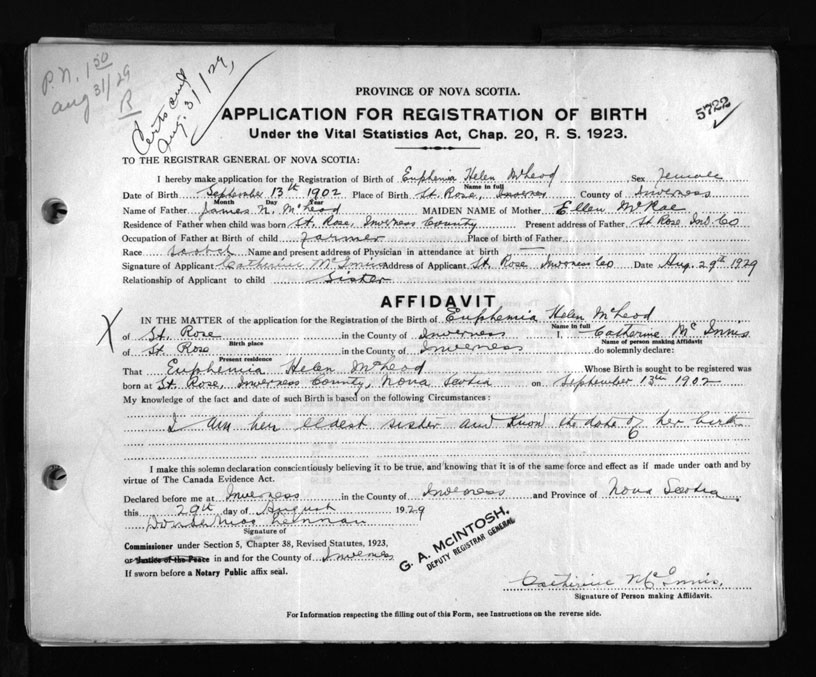 P.N. 1.50
Aug 31/29
R
Certs and
Aug. 31/29,
5722
PROVINCE OF NOVA SCOTIA.
APPLICATION FOR REGISTRATION OF BIRTH
Under the Vital Statistics Act, Chap. 20, R. S. 1923.
TO THE REGISTRAR GENERAL OF NOVA SCOTIA:
I hereby make application for the Registration of Birth of Euphemia Helen McLeod Sex female
Name in full
Date of Birth September 13th 1902 Place of Birth St. Rose, Inverness County of Inverness
Month Day Year
Name of Father James N. McLeod MAIDEN NAME of Mother Ellen McRae
Residence of Father when child was born St. Rose, Inverness County Present address of Father St Rose Inv. Co
Occupation of Father at Birth of child Farmer Place of birth of Father
Race Scotch Name and present address of Physician in attendance at birth —
Signature of Applicant Catherine McInnis Address of Applicant St. Rose Inverness Co Date Aug. 29th 1929
Relationship of Applicant to child Sister
AFFIDAVIT
X IN THE MATTER of the application for the Registration of the Birth of Euphemia Helen McLeod
Name in full
of St. Rose in the County of Inverness I, Catherine McInnis
Birth place Name of person making Affidavit
of St Rose in the County of Inverness do solemnly declare:
Present residence
That Euphemia Helen McLeod Whose Birth is sought to be registered was
born at St. Rose, Inverness County, Nova Scotia on September 13th 1902
My knowledge of the fact and date of such Birth is based on the following Circumstances:
I am her eldest sister and know the date of her birth
I make this solemn declaration conscientiously believing it to be true, and knowing that it is of the same force and effect as if made under oath and by
virtue of The Canada Evidence Act.
Declared before me at Inverness in the County of Inverness and Province of Nova Scotia.
this 29th day of August 1929
Signature of
Commissioner under Section 5, Chapter 38, Revised Statutes, 1923,
or Justice of the Peace in and for the County of Inverness
If sworn before a Notary Public affix seal.
G. A. McINTOSH,
DEPUTY REGISTRAR GENERAL
Catherine McInnis,
Signature of Person making Affidavit.
For Information respecting the filling out of this Form, see Instructions on the reverse side.